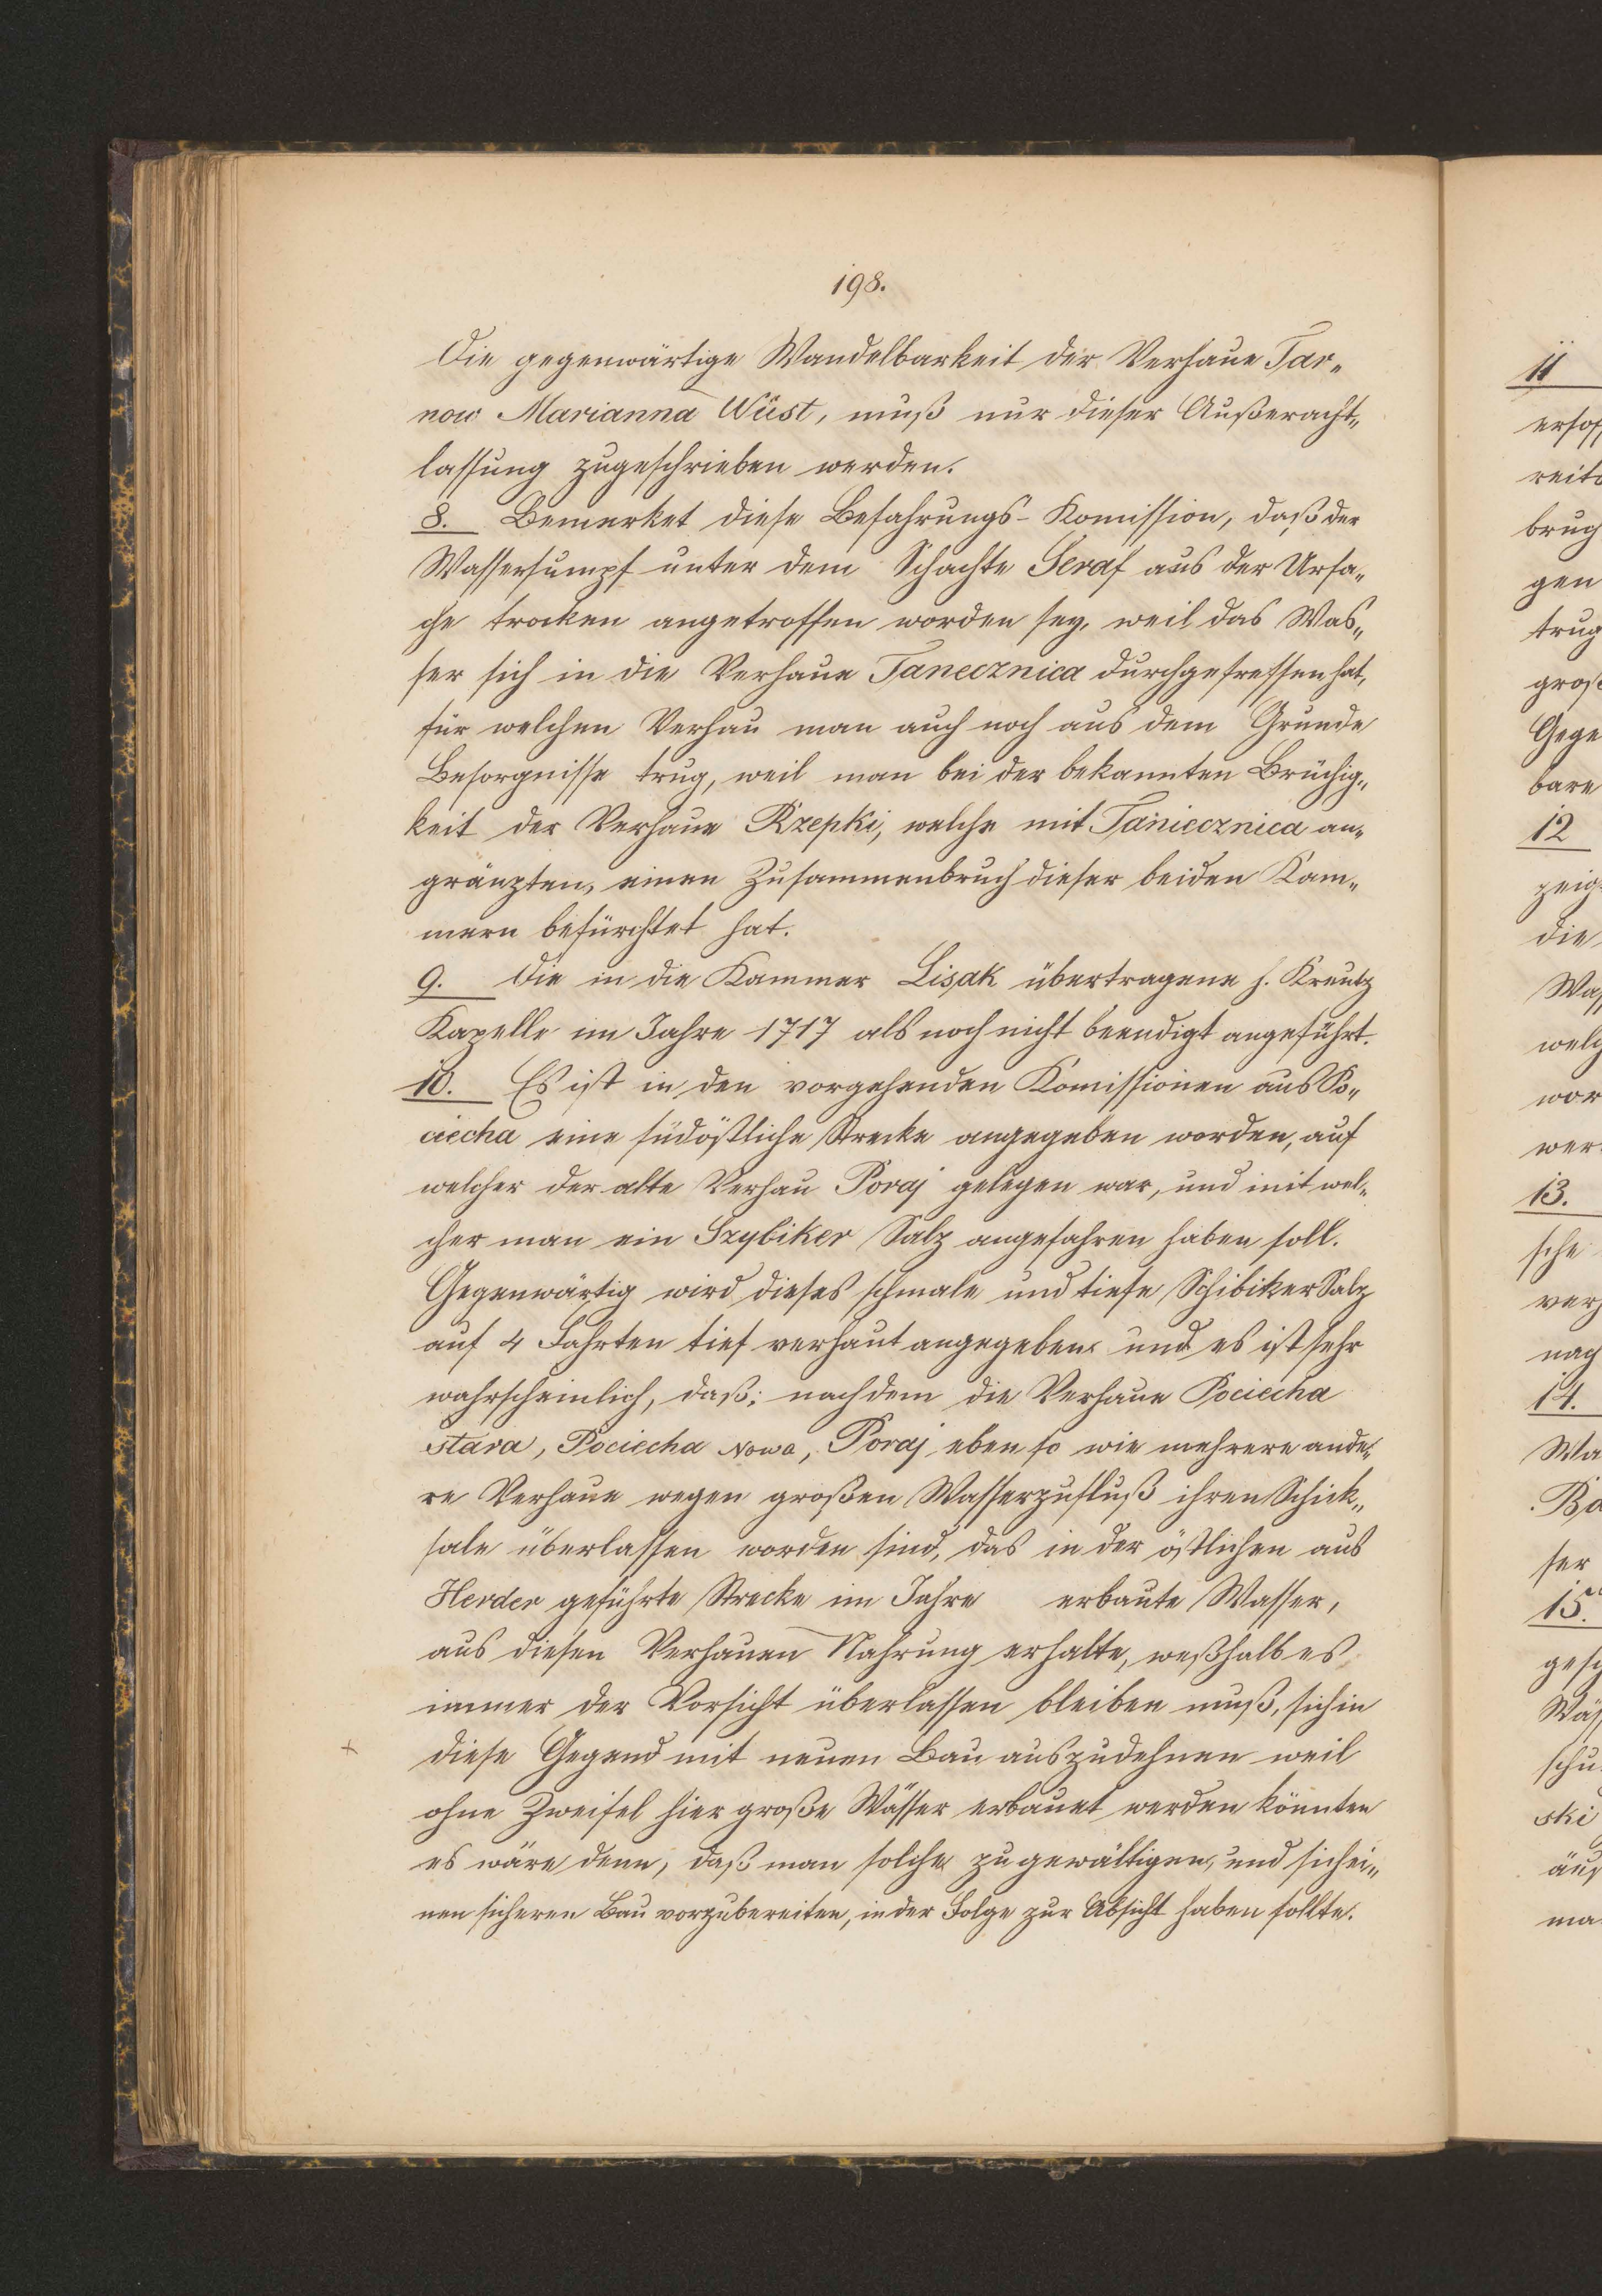 198.
Die gegenwärtige Wandelbarkeit der Verhaue Tar„
now Marianna Wüst, muß nur dieser Außeracht„
lassung zugeschrieben werden.
8. Bemerket diese Befahrungs-Komission, daß der
Wassersumpf unter dem Schachte Seraf aus der Ursa„
che trocken angetroffen worden sey, weil das Was„
ser sich in die Verhaue Tanecznica durchgefressen hat,
für welchen Verhau man auch noch aus dem Grunde
Besorgnisse trug, weil man bei der bekannten Brüchig„
keit der Verhaue Rzepki, welche mit Taniecznica an„
gränzten, einen Zusammenbruch dieser beiden Kam„
mern befürchtet hat.
9. Die in die Kammer Lisak übertragene h. Kreutz
Kapelle im Jahre 1717 als noch nicht beendigt angeführt.
10. Es ist in den vorgehenden Komissionen aus Po„
ciecha eine südöstliche Strecke angegeben worden, auf
welcher der alte Verhau Poraj gelegen war, und mit wel„
cher man ein Szybiker Salz angefahren haben soll.
Gegenwärtig wird dieses schmale und tiefe Schibiker Salz
auf 4 Fahrten tief verhaut angegeben und es ist sehr
wahrscheinlich, daß; nachdem die Verhaue Pociecha
stara, Pociecha Nowa, Poraj eben so wie mehrere ande„
re Verhaue wegen großen Wasserzufluß ihren Schick„
sale überlassen worden sind, das in der östlichen aus
Herder geführte Strecke im Jahre erbaute Wasser,
aus diesen Verhauen Nahrung erhalte, weßhalb es
immer der Vorsicht überlassen bleiben muß, sich in
+ diese Gegend mit neuen Bau auszudehnen weil
ohne Zweifel hier große Wässer erbauet werden könnten
es wäre denn, daß man solche zu gewältigen, und sich ei„
nen sicheren Bau vorzubereiten, in der Folge zur Absicht haben sollte.
11
reits
brug
gen
trug
groß
Gege
bare
12
zeig
die
Was
welch
wor
wer
13.
sche
verh
nach
14.
Wa
Ba
ser
15.
gesch
Wäs
schu
ski
äus
ma